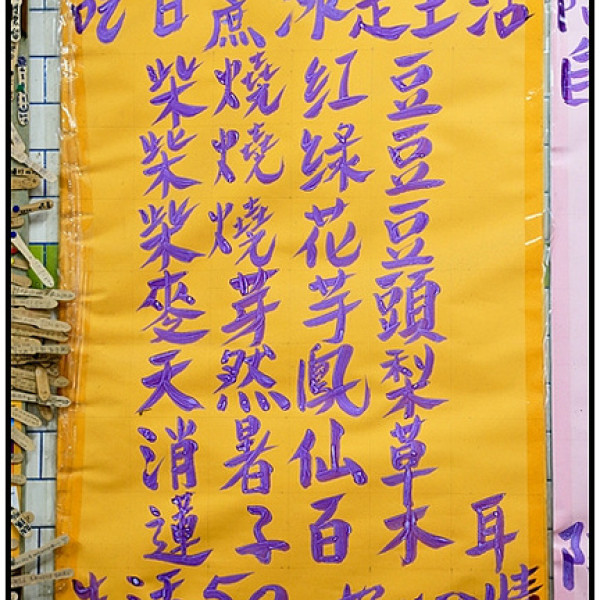 蔗
生活
柴燒红豆
柴燒绿豆
柴燒花豆
麥芽芋頭
天然鳳梨
消暑仙草
蓮子百木耳
50